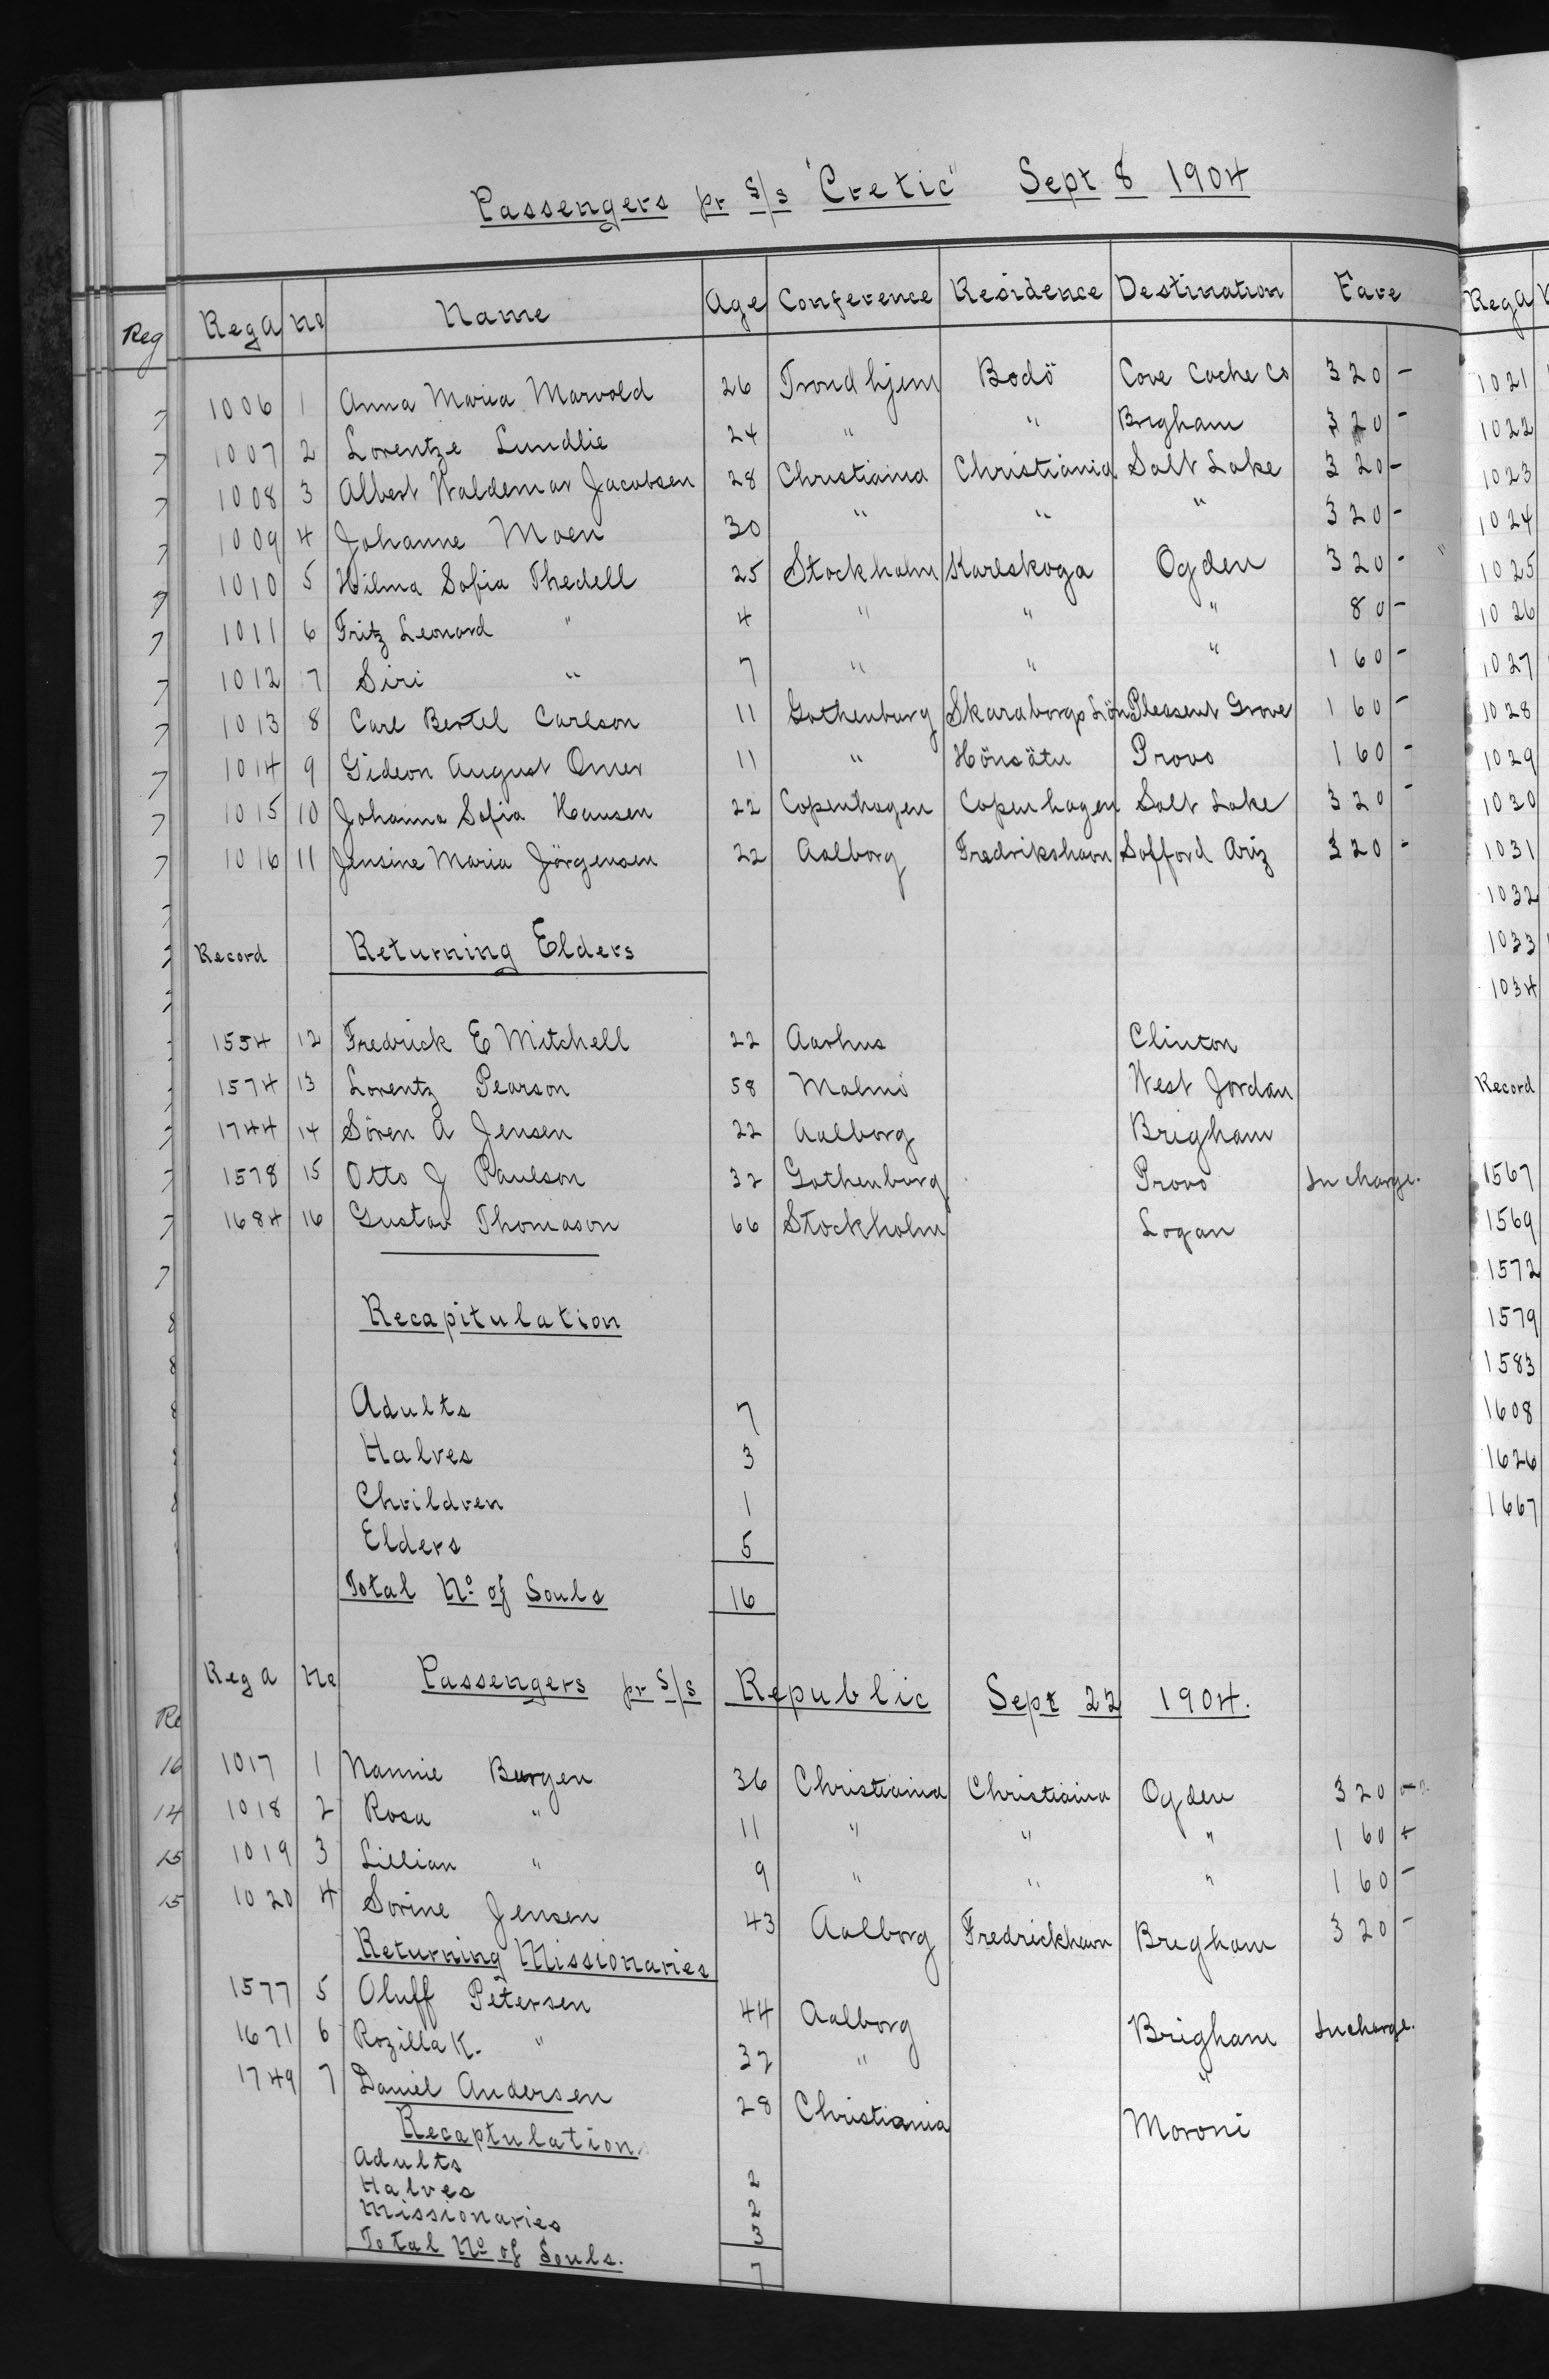 Passengers pr S/s "Cretic" Sept 8 1904
Reg A No Name Age Conference Residence Destination Fare
1006 1 Anna Maria Marvold 26 Trondhjem Bodö Cove Cache Co 320 -
1007 2 Lorentze Lundlie 24 " " Brigham 320 -
1008 3 Albert Waldemar Jacobsen 28 Christiania Christiania Salt Lake 320 -
1009 4 Johanne Moen 30 " " " 320 -
1010 5 Hilma Sofia Thedell 25 Stockholm Karlskoga Ogden 320 -
1011 6 Fritz Leonard " 4 " " " 80 -
1012 7 Siri " 7 " " " 160 -
1013 8 Carl Bertel Carlson 11 Gothenburg Skaraborgs Län Pleasent Grove 160 -
1014 9 Gideon August Omer 11 " Hönsätu Provo 160 -
1015 10 Johanna Sofia Hansen 22 Copenhagen Copenhagen Salt Lake 320 -
1016 11 Jensine Maria Jörgensen 22 Aalborg Fredrikshavn Safford Ariz 320 -
Record Returning Elders
1554 12 Fredrick E Mitchell 22 Aarhus Clinton
1574 13 Lorentz Pearson 58 Malmö West Jordan
1744 14 Sören A Jensen 22 Aalborg Brigham
1578 15 Otto J Paulson 32 Gothenburg Provo In charge.
1684 16 Gustav Thomason 66 Stockholm Logan
Recapitulation
Adults 7
Halves 3
Chrildren 1
Elders 5
Total No. of Souls 16
Reg A No Passengers pr S/s Republic Sept 22 1904.
1017 1 Nannie Burgen 36 Christiania Christiania Ogden 320 -
1018 2 Rosa " 11 " " " 160 -
1019 3 Lillian " 9 " " " 160 -
1020 4 Sorine Jensen 43 Aalborg Fredrickhavn Brigham 320 -
Returning Missionaries
1577 5 Oluff Petersen 44 Aalborg Brigham In charge.
1671 6 Rozilla K. " 37 " "
1749 7 Daniel Andersen 28 Christiania Moroni
Recaptulation
Adults 2
Halves 2
Missionaries 3
Total No. of Souls. 7
Reg
Re
16
14
15
15
Reg A
1021
1022
1023
1024
1025
1026
1027
1028
1029
1030
1031
1032
1033
1034
Record
1567
1569
1572
1579
1583
1608
1626
1667